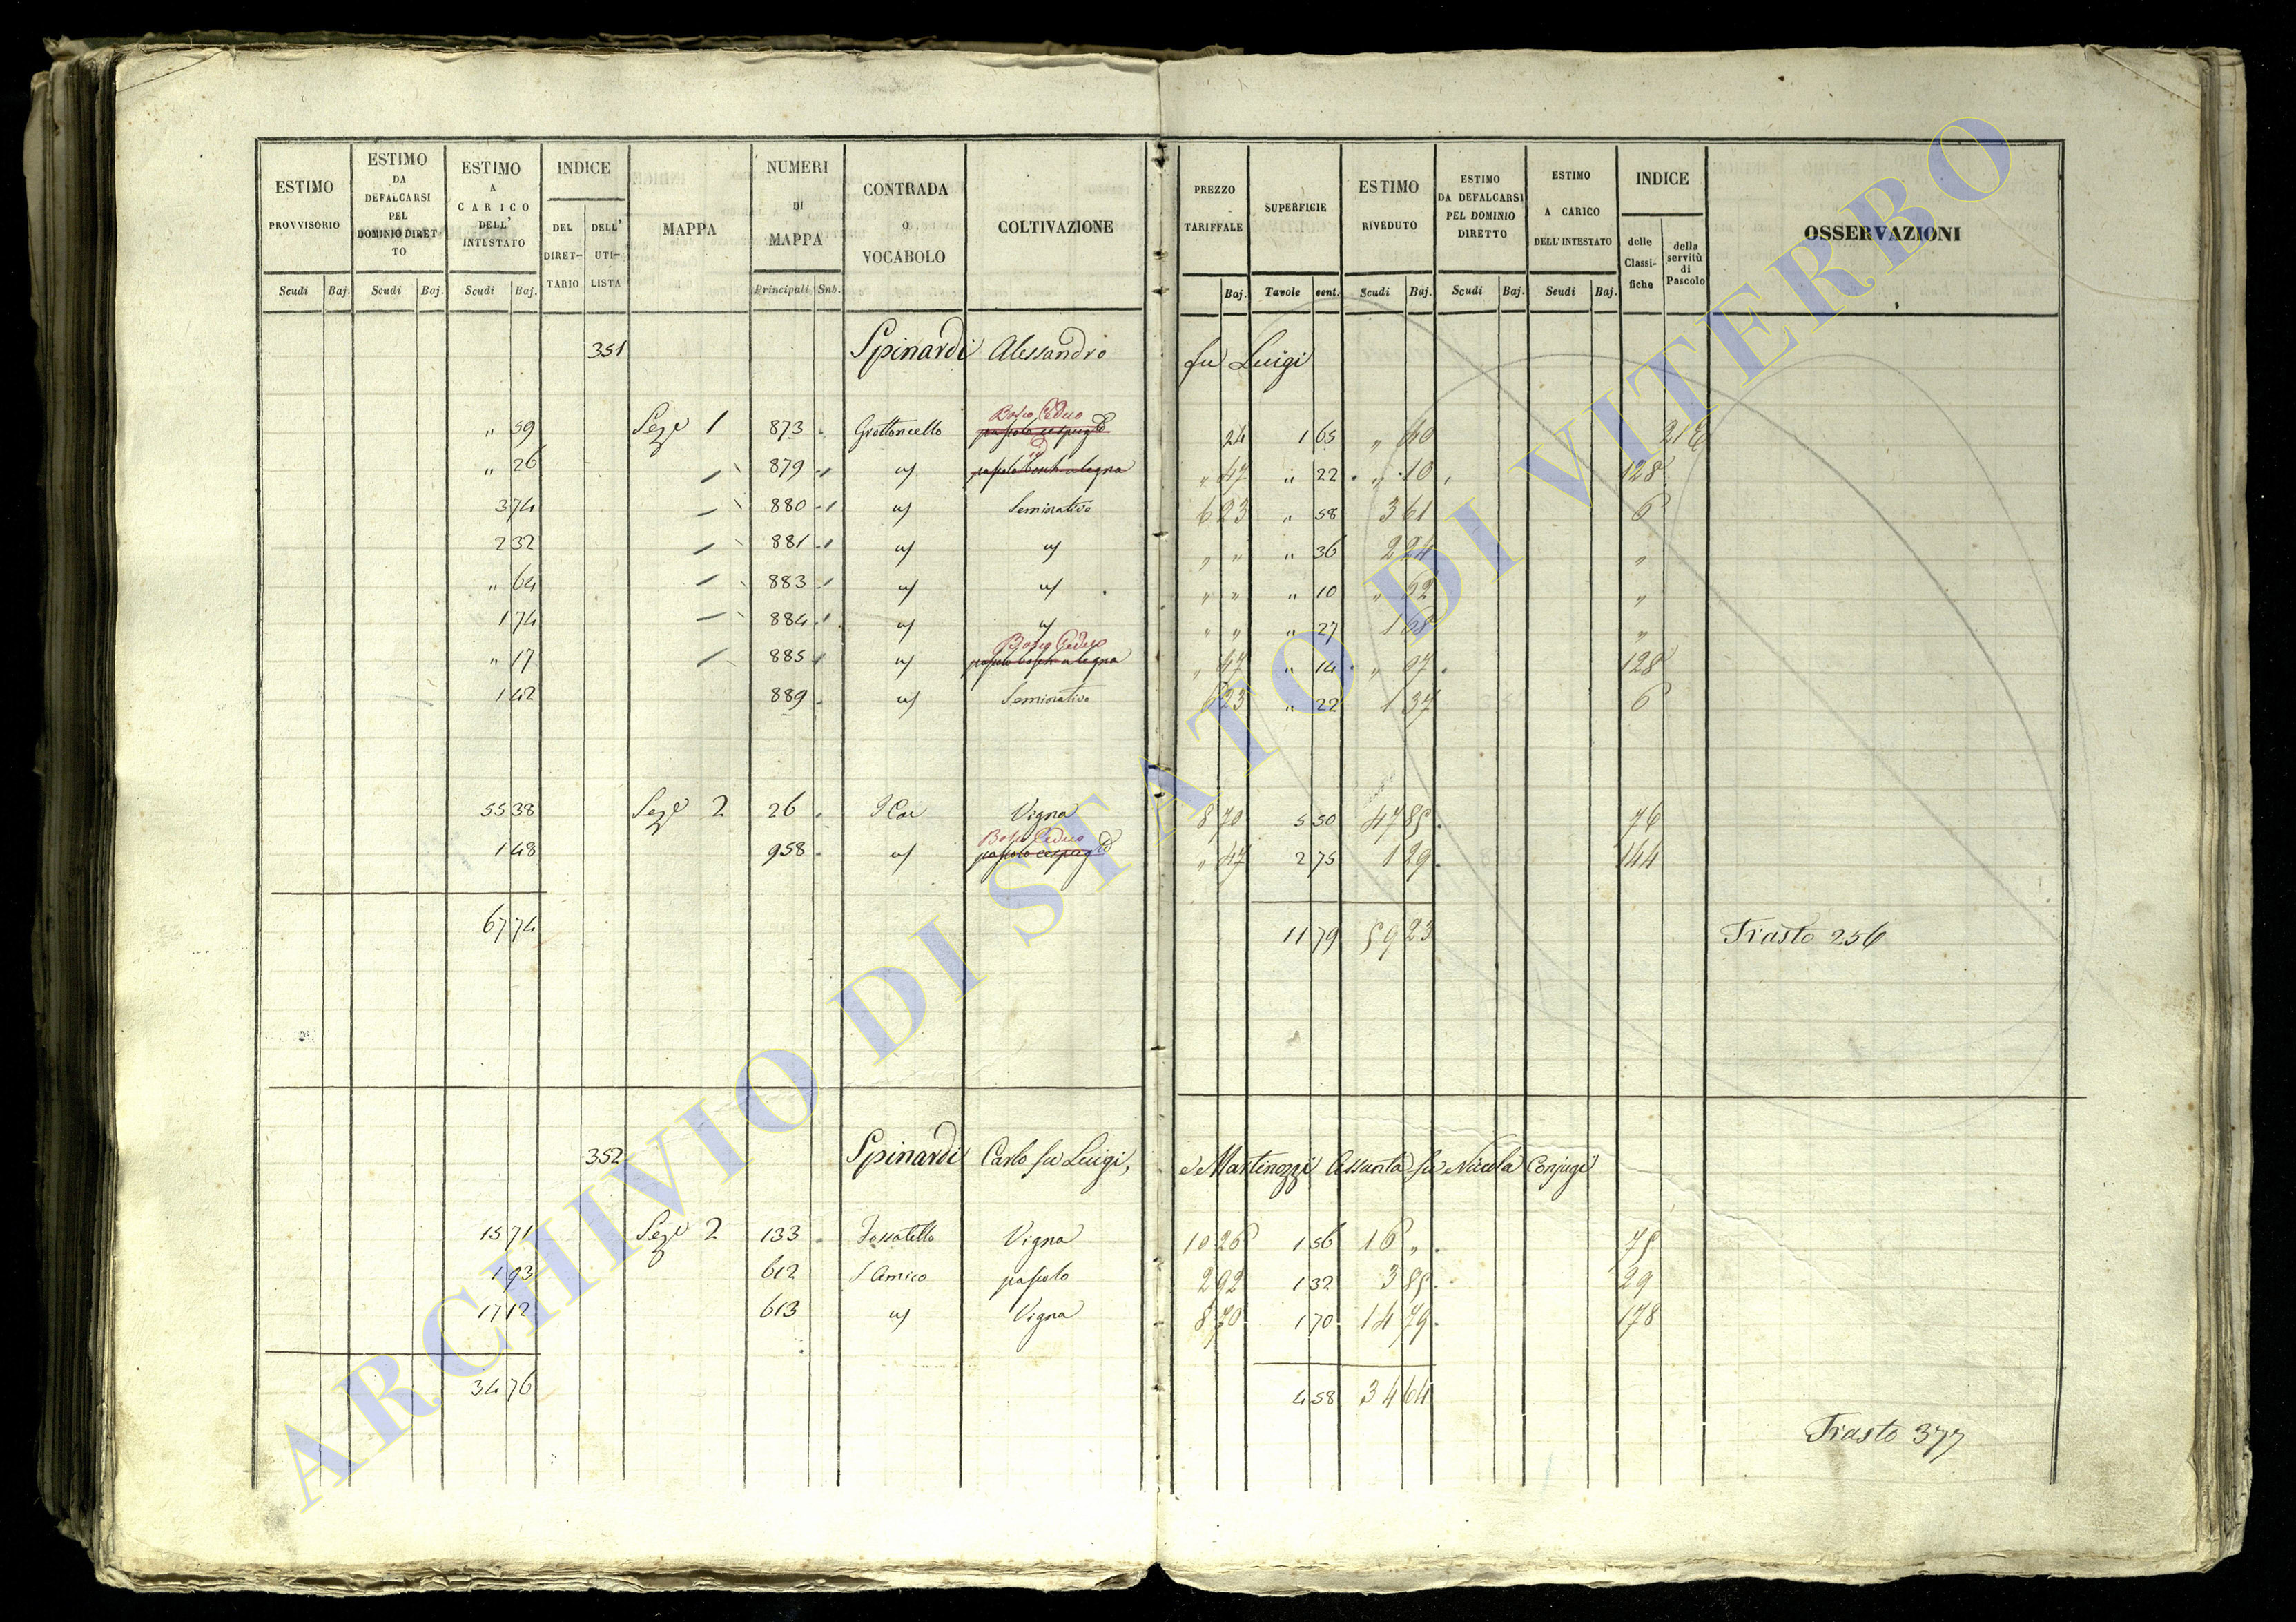 ESTIMO PROVVISORIO Scudi Baj.
ESTIMO DA DEFALCARSI PEL DOMINIO DIRET-TO Scudi Baj.
ESTIMO A CARICO DELL' INTESTATO Scudi Baj.
INDICE DEL DIRET-TARIO DELL' UTI-LISTA
MAPPA
NUMERI DI MAPPA Principali Sub.
CONTRADA O VOCABOLO
COLTIVAZIONE
PREZZO TARIFFALE Baj.
SUPERFICIE Tavole cent.
ESTIMO RIVEDUTO Scudi Baj.
ESTIMO DA DEFALCARSI PEL DOMINIO DIRETTO Scudi Baj.
ESTIMO A CARICO DELL' INTESTATO Scudi Baj.
INDICE delle Classi-fiche della servitù di Pascolo
OSSERVAZIONI
351 Spinardi Alessandro fu Luigi
Bosco Ceduo
" 59 Sez.e 1 873 Grottoncello pascolo cespug.to 24 1 65 " 40
id
" 26 879 " pascolo bosch a legna " 47 " 22 " 10 128
3 74 880 " Seminativo 6 23 " 58 3 61 6
2 32 881 " " " " " 36 2 24 "
" 64 883 " " " " " 10 " 62 "
1 74 884 " " " " " 27 1 68 "
Bosco Ceduo
" 17 885 " pascolo bosch a legna " 47 " 14 " 07 128
1 42 889 " Seminativo 6 23 " 22 1 37 6
55 38 Sez.e 2 26 Vigna 8 70 5 50 47 85 76
Bosco Ceduo
1 48 958 " pascolo cespug.to " 47 2 75 1 29 144
67 74 11 79 59 23 Trasto 256
352 Spinardi Carlo fu Luigi, e Martinozzi Assunta fu Nicola Conjugi
15 71 Sez.e 2 133 Fossatello Vigna 10 26 1 56 16 " 75
1 93 612 S Amico pascolo 2 92 1 32 3 85 29
17 12 613 " Vigna 8 70 1 70 14 79 178
34 76 4 58 34 64
Trasto 377
ARCHIVIO DI STATO DI VITERBO